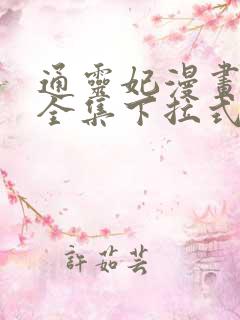 通靈妃漫畫
全集下拉式
許茹芸